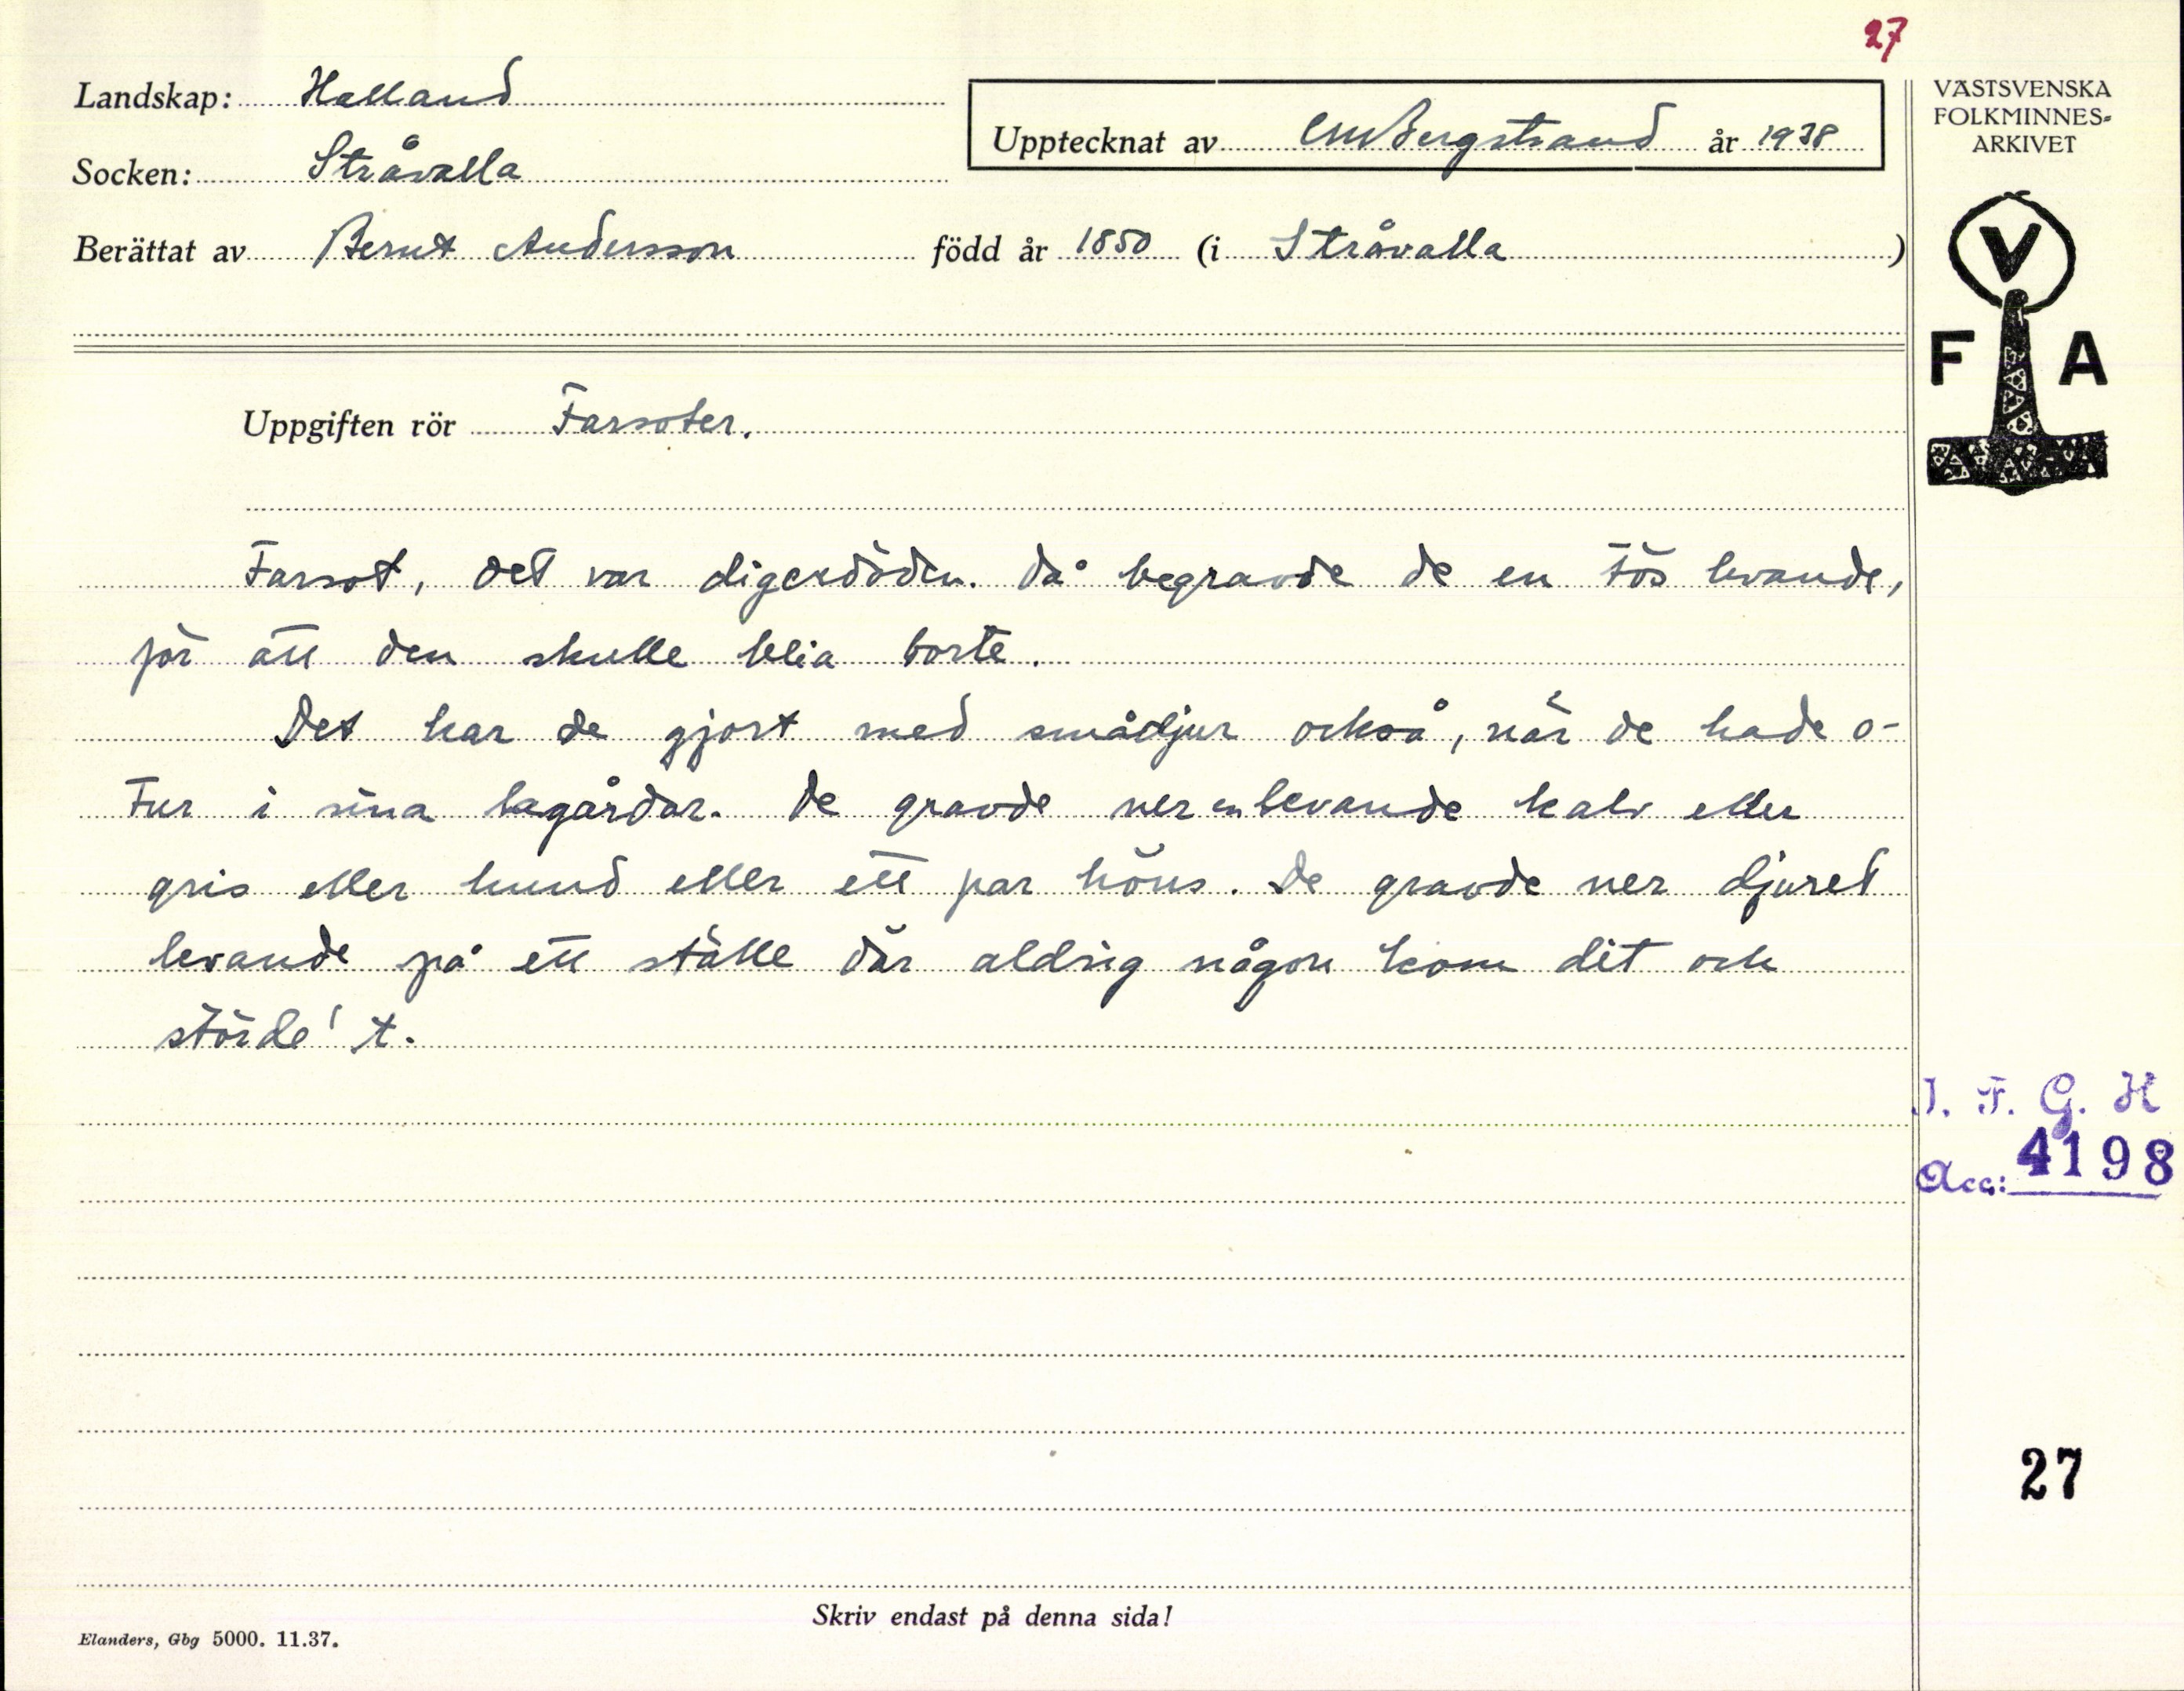 27
Landskap: Halland
Socken: Stråvalla
Upptecknat av CM Bergstrand år 1938
Berättat av Bernt Andersson född år 1850 (i Stråvalla)
VÄSTSVENSKA
FOLKMINNES-
ARKIVET
V
F A
Uppgiften rör Farsoter.
Farsot, det var digerdöden. Då begravde de en tös levande,
för att den skulle blia borte.
Det har de gjort med smådjur också, när de hade o-
tur i sina lagårdar. De gravde ner en levande kalv eller
gris eller hund eller ett par höns. De gravde ner djuret
levande på ett ställe där aldrig någon kom dit och
störde't.
I. F. G. H
Acc: 4198
27
Skriv endast på denna sida!
Elanders, Gbg 5000. 11.37.